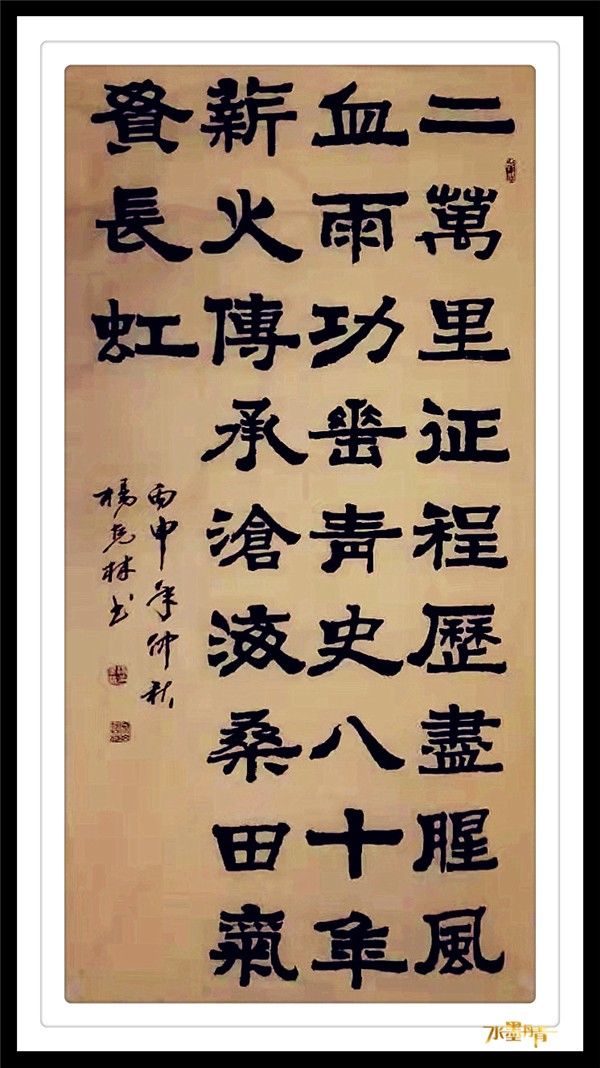 二萬里征程歷盡腥風
血雨功垂青史八十年
薪火傳承滄海桑田氣
貫長虹
丙申年仲秋
楊林书
水墨丹青